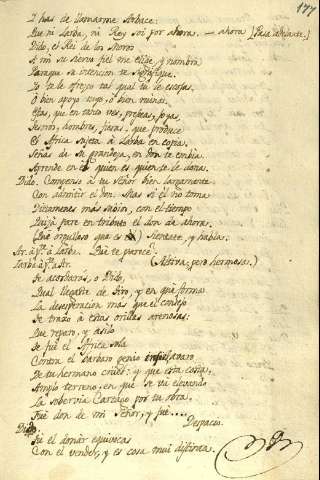 177
I has de llamarme Arbace:
Que ni Iarba, ni Rey soi por ahora. — ahora [Pasa adelante.]
Dido, el Rei de los Moros
A mi su siervo fiel me elige, y nombra
Paraque su intencion te signifique.
Yo te le ofrezco tal qual tu le escojas,
O bien apoyo tuyo, ò bien ruina.
Estas, que en tanto ves, preseas, joyas,
Tesoros, hombres, fieras, que produce
El Africa sujeta à Iarba en copia,
Señas de su grandeza, en don te embia.
Aprende en el quien es quien te le dona.
Dido. Compenso à tu Señor bien largamente
Con admitir el don. Mas si él no toma
Dictamenes mas sabios, con el tiempo
Quizà pare en tributo el don de ahora.
Què orgulloso que es Sientate, y habla.
Ar. ap. à Iarb. Què te parece?
Iarb. à p. à Ar. (Altiva, pero hermosa.)
Te acordaras, o Dido,
Qual llegaste de Tiro, y en que forma
La desesperacion mas que el consejo
Te traxo à estas orillas arenosas:
Que reparo, y asilo
Te fuè el Africa sola
Contra el barbaro genio
De tu hermano cruel: y que esta corta,
Amplo terreno, en que se và elevando
La sobervia Cartago por tu obra,
Fuè don de mi Señor, y fuè....
Despacio.
Dido.
Fuè el donàr equivocas
Con el vender, y es cosa mui distinta.